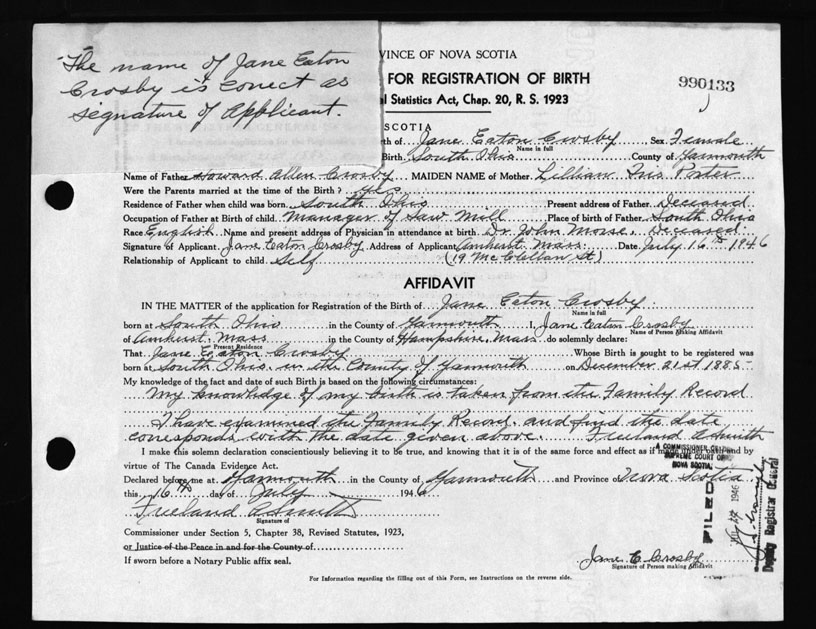 "The name of Jane Eaton
Crosby is corect as
signature of Applicant.
VINCE OF NOVA SCOTIA
FOR REGISTRATION OF BIRTH
al Statistics Act, Chap. 20, R. S. 1923
990133
SCOTIA
th of Jane Eaton Crosby Sex Female
Name in full
Birth. South Ohio County of Yarmouth
Name of Father Howard Allen Crosby MAIDEN NAME of Mother Lillian Iris Porter
Were the Parents married at the time of the Birth? yes
Residence of Father when child was born South Ohio Present address of Father Deceased
Occupation of Father at Birth of child. Manager of Saw Mill Place of birth of Father South Ohio
Race English Name and present address of Physician in attendance at birth. Dr. John Morse. Deceased
Signature of Applicant. Jane Eaton Crosby Address of Applicant Amherst Mass. Date July 16th 1946
Relationship of Applicant to child Self (19 McClellan St)
AFFIDAVIT
IN THE MATTER of the application for Registration of the Birth of Jane Eaton Crosby
Name in full
born at South Ohio in the County of Yarmouth I, Jane Eaton Crosby
Name of Person Making Affidavit
of Amherst. Mass in the County of Hampshire, Mass do solemnly declare:
Present Residence
That Jane Eaton Crosby Whose Birth is sought to be registered was
born at South Ohio. in the County of Yarmouth on December 21st 1885
My knowledge of the fact and date of such Birth is based on the following circumstances:
My knowledge of my birth is taken from the Family Record
I have examined the Family Record. and find the date
corresponds with the date given above. Freeland A Smith
I make this solemn declaration conscientiously believing it to be true, and knowing that it is of the same force and effect as if made under oath and by
virtue of The Canada Evidence Act.
A COMMISSIONER
SUPREME COURT OF
NOVA SCOTIA
Declared before me at Yarmouth in the County of Yarmouth and Province of Nova Scotia
this 16th day of July 1946
Freeland A Smith
Signature of
Commissioner under Section 5, Chapter 38, Revised Statutes, 1923,
or Justice of the Peace in and for the County of
If sworn before a Notary Public affix seal.
FILED
1946
Deputy Registrar General
Jane E Crosby
Signature of Person making Affidavit
For Information regarding the filling out of this Form, see Instructions on the reverse side.